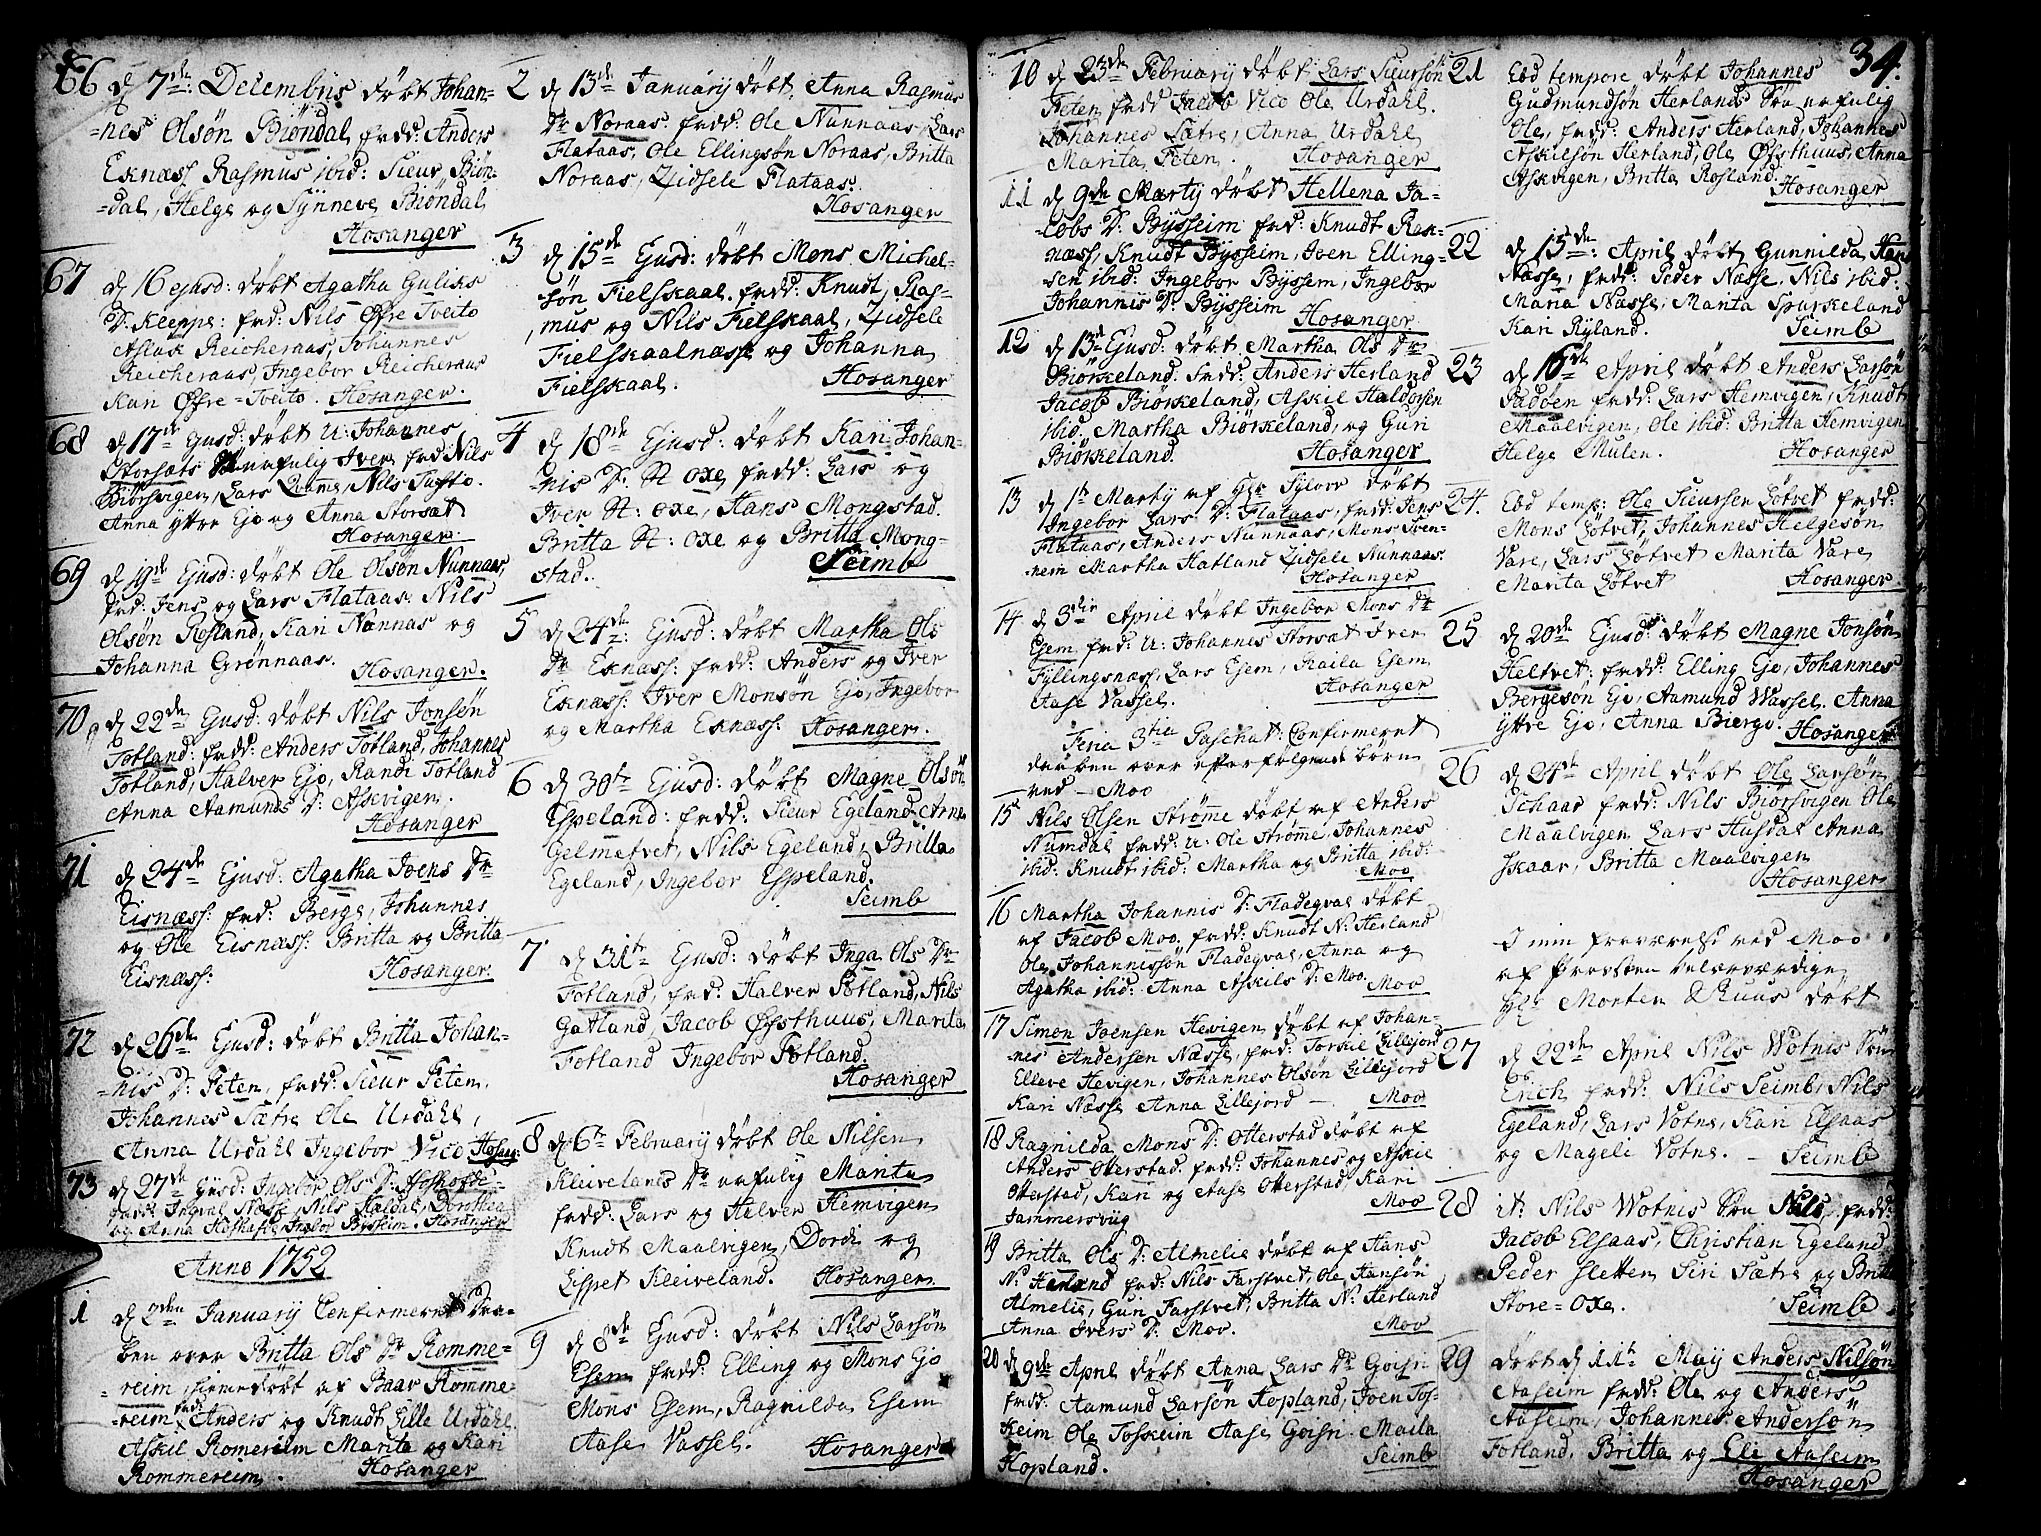 66 d 7de: Decembris døbt Johan-
nes Olsøn Biøndal, fadd: Anders
Exnæss Rasmus ibid: Sieur Biøn-
dal, Helge og Synneve Biøndal
Hosanger
67 d 16 ejusd: døbt Agatha Guliks
Dr Kleppe: fad: Nils Øfre Tveito
Aslak Reicheraas, Johannes
Reicheraas, Ingebor Reicheraas
Kari Øfre-Tveito. Hosanger.
68 d 17de Ejusd: døbt U: Johannes
Storsæts Iver, fad Nils
Biørsvigen, Lars Qvamme, Nils
Anna yttre Ejo og Anna Storsæt
Hosanger
69 d 19de Ejusd: døbt Ole Olsøn Nunnaas,
fad: Jens og Lars Flataas. Nils
Olsøn Rosland, Kari Nannas og
Johanna Grønnaas. Hosanger.
70 d 22de Ejusd: døbt Nils Jonsøn
Totland: fadd: Anders Totland, Johannes
Totland, Halver Ejo, Randi Totland
Anna Aamunds Dr Askvigen.
Hosanger
71 d 24de Ejusd: Agatha Joens Dr
Eisnæss: fad: Berge, Johannes
og Ole Eisnæss: Britta og Britta
Eisnæss: Hosanger.
72 d 26de Ejusd: døbt Britta Johan-
nis Dr Feten, fadd: Sieur Feten,
Johannes Sætre Ole Urdahl,
Anna Urdahl Ingebor Vico Hosang:
73 d 27de Ejusd: Ingebor Ols Dr
Næsse, Nils Dorothea
og Anna Ingebor Bysseim. Hosanger
Anno 1752
1 d 2den January Confirmeret Daa-
ben over Britta Ols Dr Romme-
reim, hiemedøbt af Baar Romme-
reim fadd: Anders og Knudt Lille Urdahl
Askil Romereim Marita og Kari
Rommereim. Hosanger
2 d 13de January døbt Anna Rasmus
Dr Noraas. fadd: Ole Nunnaas, Lars
Flataas, Ole Ellingsøn Noraas, Britta
Noraas, Zidsele Flataas.
Hosanger
3 d 15de Ejusd: døbt Mons Michel-
søn Fielskaal. fadd: Knudt, Ras-
mus og Nils Fielskaal, Zidsele
Fielskaalnæss og Johanna
Fielskaal. Hosanger
4 d 18de Ejusd: døbt Kari Johan-
nis Dr St oxe, fadd: Lars og
Iver St: oxe, Hans Mongstad.
Britta St: oxe og Britta Mong-
stad. Seimb
5 d 24de: Ejusd: døbt Martha Ols
Dr Exnæss: fadd: Anders og Iver
Exnæss: Iver Monsøn Ejo, Ingebor
og Martha Exnæss. Hosanger.
6 d 30te Ejusd: døbt Magne Olsøn
Espeland: fadd: Sieur Egeland, Arne
Gelmetvet, Nils Egeland, Britta
Egeland, Ingebor Espeland.
Seimb
7 d 31te Ejusd: døbt Inga Ols Dr
Totland, fad: Halver Totland, Nils
Gatland, Jacob Øfsthuus, Marita
Totland Ingebor Totland.
Hosanger
8 d 6te February døbt Ole Nilsen
Kleivelands Dr Marita
fadd: Lars og Halver Hemvigen
Knudt Maalvigen, Dordi og
Lispet Kleiveland. Hosanger
9 d 8de Ejusd: døbt Nils Larsøn
Esem fadd: Elling og Mons Ejo
Mons Esem, Ragnilda Esem
Aase Vassel. Hosanger
10 d 23de February døbt Lars Sieursøn
Feten fadd Jacob Vico Ole Urdahl.
Johannes Sætre, Anna Urdahl
Marita Feten. Hosanger
11 d 9de Marty døbt Hellena Ja-
cobs Dr Bysseim fad: Knudt Ran-
næss, Knudt Bysseim, Iven Elling-
sen ibid: Ingebor Byssem, Ingebor
Johannis Dr Bysseim Hosanger
12 d 13de Ejusd: døbt Martha Ols Dr
Biørkeland. fadd: Anders Herland
Jacob Biørkeland, Askil Haldorsen
ibid, Martha Biørkeland, og Guri
Biørkeland. Hosanger
13 d 1te Marty af Hr døbt
Ingebor Lars Dr Flataas, fad: Jens
Flataas, Anders Nunnaas, Mons
Martha Hatland Zidsele Nunnaas.
Hosanger
14 d 3die April døbt Ingebor Mons Dr
Esem, fad: U: Johannes Storsæt Iver
Fyllingsnæss, Lars Esem, Maila Esem
Aase Vassel. Hosanger
Feria 3tia Paschat: Confirmeret
daaben over efterfølgende børn
ved - Moo
15 Nils Olsen Strømme døbt af Anders
Numdal fadd: U: Ole Strøme Johannes
ibid: Knudt ibid: Martha og Britta ibid:
Moo
16 Martha Johannis Dr Fladeqval døbt
af Jacob Moo. fadd: Knudt N: Herland
Ole Johannissøn Fladeqval, Anna og
Agatha ibid: Anna Askils Dr Moo. Moo
17 Simon Joensen Hevigen døbt af Johan-
nes Andersen Næsse, fad: Torkil Lillejord
Elleve Hevigen, Johannes Olsøn Lillejord
Kari Næsse Anna Lillejord - Moo
18 Ragnilda Mons Dr Otterstad døbt af
Anders Otterstad. fadd: Johannes og Askil
Otterstad, Kari og Aase Otterstad Kari
Hammersviig Moo
19 Britta Ols Dr Almelie døbt af Hans
N: Herland fad: Nils Farstvet, Ole Hansøn
Almelie, Guri Farstvet, Britta N: Herland
Anna Ivers Dr Moo. Moo
20 d 9de April døbt Anna Lars Dr
fadd: Aamund Larsøn Hopland, Joen Tos-
keim Ole Toskeim Aase Maila
Hopland. Seimb
34.
21 Eod tempore døbt Johannes
Gudmundsøn Herlands Søn
Ole, fad: Anders Herland, Johannes
Askilsøn Herland, Ole Øfsthuus, Anna
Askvigen, Britta Rosland. Hosanger
22 d 15de: April døbt Gunnilda Hans
Næsse, fadd: Peder Næsse, Nils ibid:
Maria Næsse, Marita Spurkeland
Kari Ryland. Seimb
23 d 16de April døbt Anders Larsøn
Padøen fadd: Lars Hemvigen, Knudt
Maalvigen, Ole ibid: Britta Hemvigen
Helge Mulen. Hosanger
24. Eod temp: Ole Sieursen Løtvet fadd:
Mons Løtvet, Johannes Helgesøn
Vare, Lars Løtvet Marita Vare
Marita Løtvet Hosanger
25 d 20de Ejusd: døbt Magne Jonsøn
Heltvet; fadd: Elling Ejo, Johannes
Bergeson Ejo, Aamund Wassel, Anna
yttre Ejo, Anna Bierge. Hosanger
26 d 24de April døbt Ole Larsøn
Schaar fadd: Nils Biørsvigen Ole
Maalvigen Lars Husdal Anna
Skaar, Britta Maalvigen
Hosanger
I min fraværelse ved Moo
af Provsten velærværdige
Hr Morten Ruus døbt
27 d 22de April Nils Wotnes Søn
Erich fadd: Nils Seimb, Nils
Egeland, Lars Votne, Kari Elsaas
og Mageli Votne. - Seimb
28 it: Nils Wotnes Søn Nils, fadd:
Jacob Elsaas, Christian Egeland
Peder Sletten Siri Sætre og Britta
Store-Oxe. Seimb
29 døbt d 11te May Anders Nilsøn
Aaseim fadd: Ole og Anders
Aaseim, Johannes Andersøn
Totland, Britta og Eli Aaseim
Hosanger